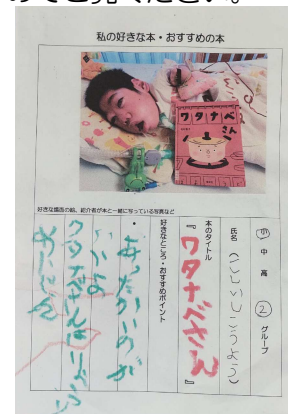 ください。
私の好きな本・おすすめの本
ワタナベ
さん
好きな場面の絵、紹介者が本と一緒に写っている写真など
小 中 高 ② グループ
氏名（いしいこうよう）
本のタイトル
『ワタナベさん』
好きなところ・おすすめポイント
・あったかいのが
いいよ
ワタナベさんはりょうり
めいじん